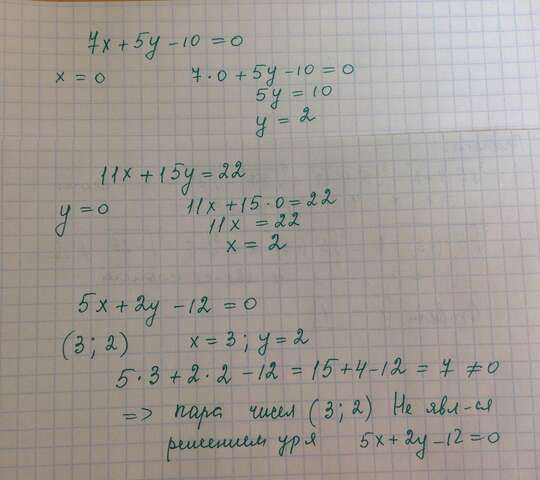 7x+5y-10=0
x=0 7·0+5y-10=0
5y=10
y=2
11x+15y=22
y=0 11x+15·0=22
11x=22
x=2
5x+2y-12=0
(3;2) x=3; y=2
5·3+2·2-12=15+4-12=7≠0
=> пара чисел (3;2) Не явл-ся
решением ур я 5x+2y-12=0